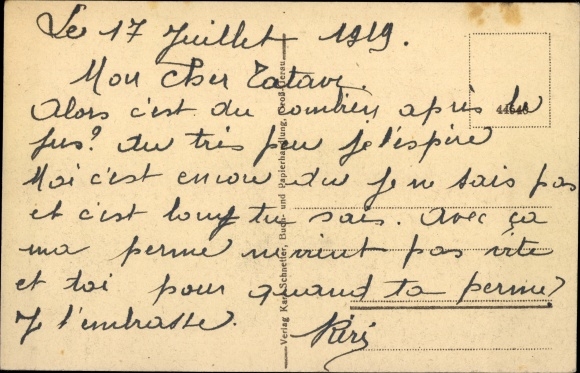 Le 17 Juillet 1919.
Mon cher Tatave
Alors c'est du combien après le
jus? du très peu je l'espère
Moi c'est encore du je ne sais pas
et c'est long tu sais. Avec ça
ma perme ne vient pas vite
et toi pour quand ta perme?
Je t'embrasse. Riri
44646
Verlag Karl Schneller, Buch- und Papierhandlung, Groß-Gerau